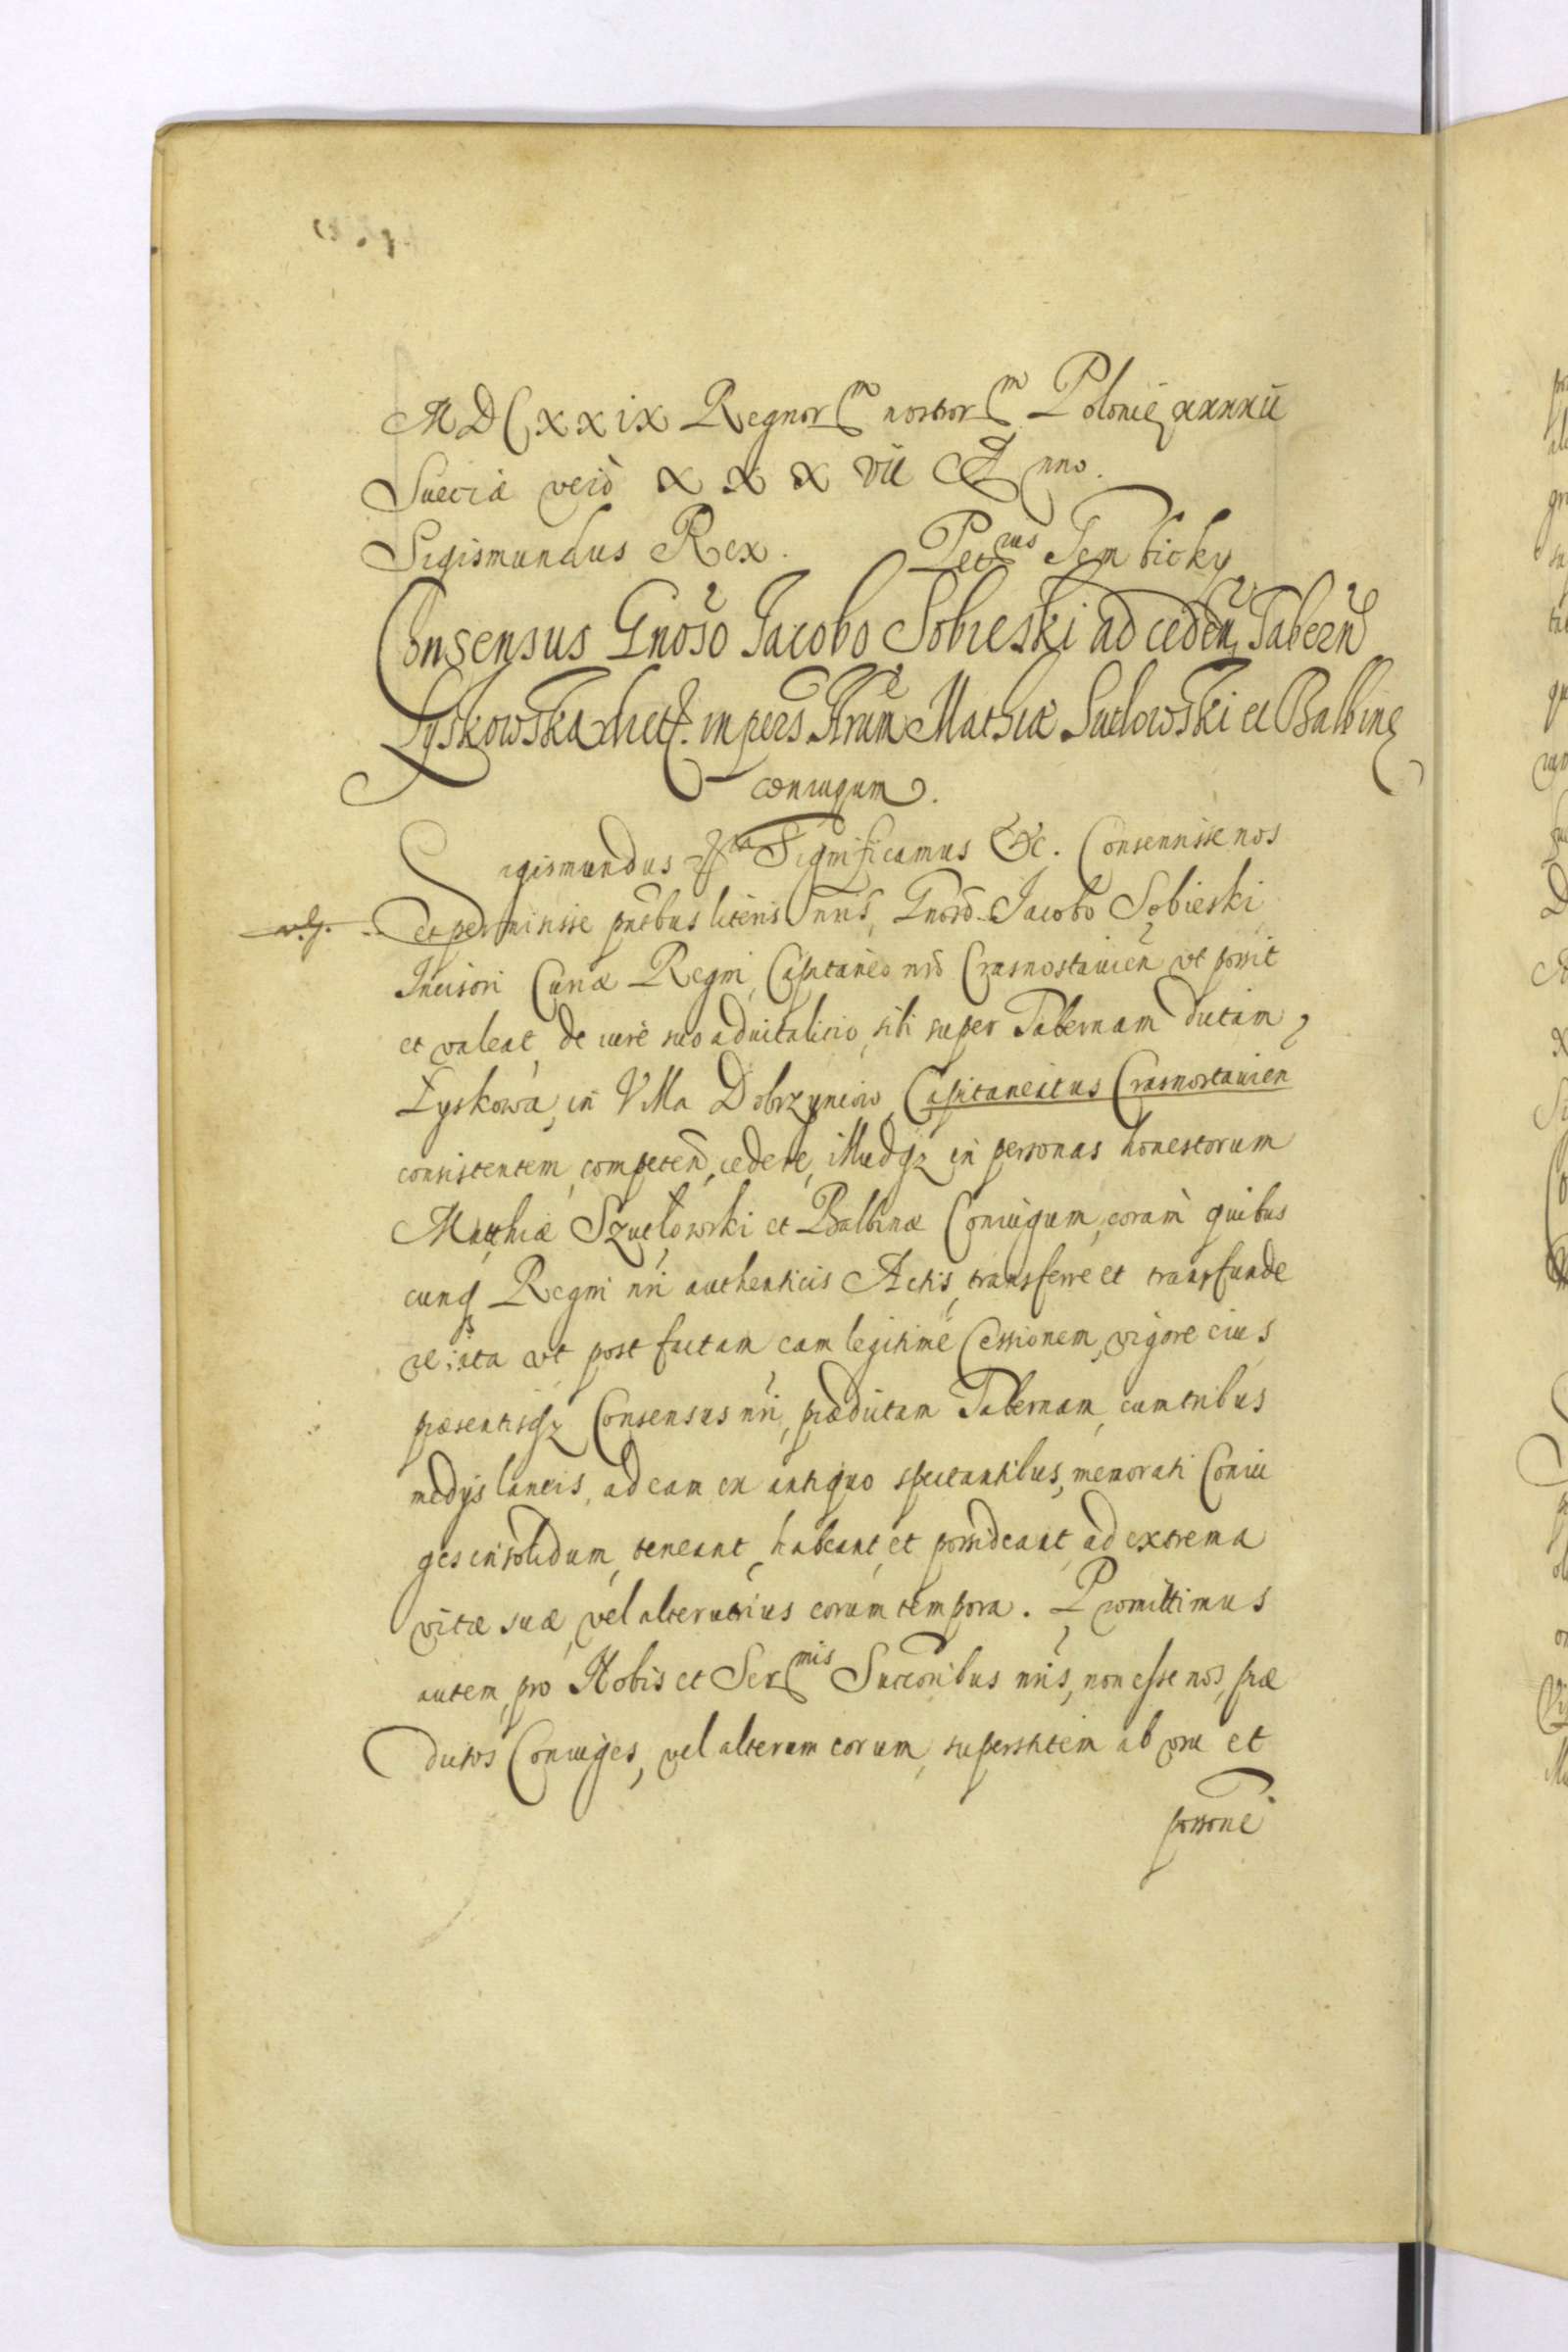 MDCxxix Regnorm nostorm Polonię xxxxii
Sueciæ verò x x x vii Anno.
Sigismundus Rex. Petrus Gembicky
Consensus Gnoso Iacobo Sobieski ad ceden Tabern
Lyskowska dict. in pers Hrum Mathiæ Suclowski et Balbinę
coniugum.
Sigismundus Significamus &c. Consensisse nos
et permisisse pntbus literis nris, Gnoso Iacobo Sobieski
Incisori Curiæ Regni, Capitaneo nro Crasnostauien vt possit
et valeat, de iure suo aduitalitio, sibi super Tabernam dictam
Łyskowa, in Villa Dobrzyniow, Capitaneatus Crasnostauien
consistentem, competen, cedere, illudqz in personas honestorum
Matthiæ Szucłowski et Balbinæ Coniugum, coram quibus
cunq Regni nri authenticis Actis, transferre et transfunde
re; ita vt post factam eam legitimè Cessionem, vigore eius
præsentisqz Consensus nri, prædictam Tabernam, cum tribus
medys laneis, ad eam ex antiquo spectantibus, memorati Coniu
ges in solidum, teneant, habeant, et possideant, ad extrema
vitæ suæ, vel alterutrius eorum tempora. Promittimus
autem, pro Nobis et Sermis Succoribus nris, non esse nos, præ
dictos Coniuges, vel alterum eorum, superstitem ab vsu et
possone